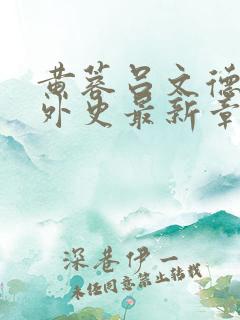 黄蓉吕文德
外史最新章
深巷伊一
未经同意禁止转载